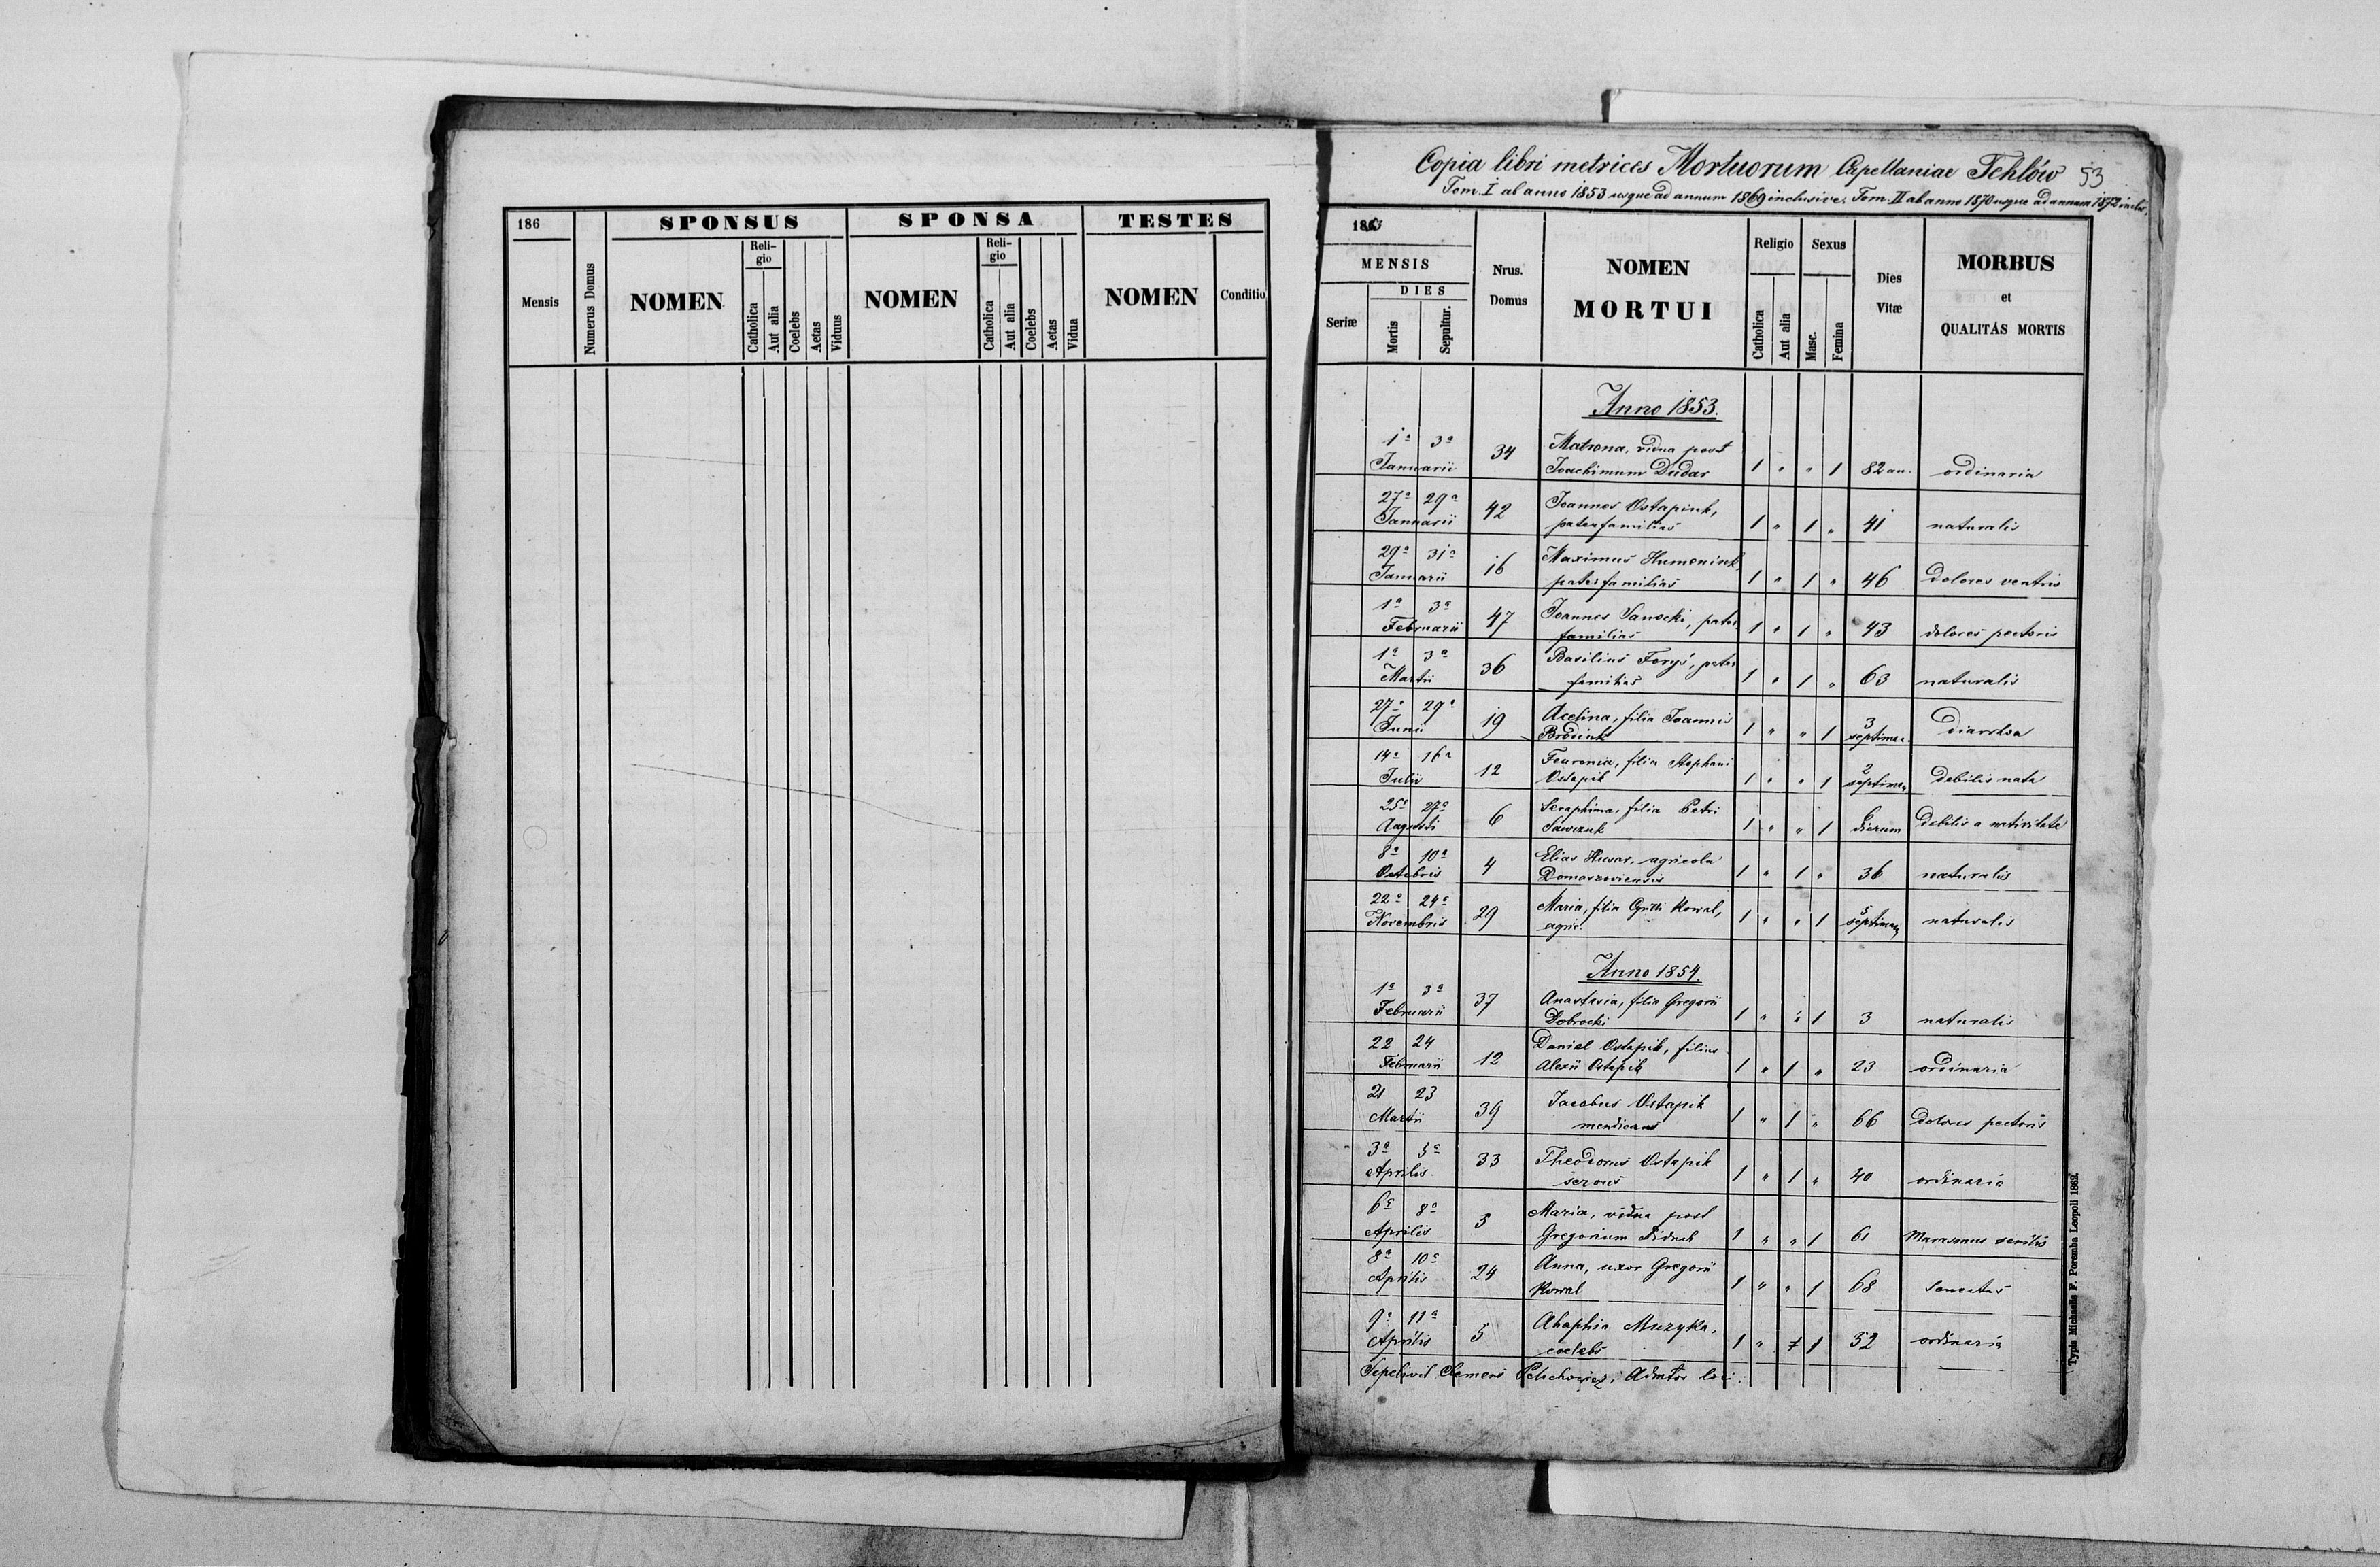 186
SPONSUS
SPONSA
TESTES
Mensis
Numerus Domus
NOMEN
Reli-
gio
Catholica
Aut alia
Coelebs
Aetas
Viduus
NOMEN
Reli-
gio
Catholica
Aut alia
Coelebs
Aetas
Vidua
NOMEN
Conditio
Copia libri metrices Mortuorum Capellaniae Tehlów 53
Tom. I ab anno 1853 usque ad annum 1869 inclusive. Tom. II ab anno 1870 usque ad annum 1872 inclus.
MENSIS
DIES
Seriæ
Mortis
Sepultur.
Nrus.
Domus
NOMEN
MORTUI
Religio
Catholica
Aut alia
Sexus
Masc.
Femina
Dies
Vitæ
MORBUS
et
QUALITÁS MORTIS
Anno 1853.
1a 3a 34 Matrona, vidua post
Januarii Joachimum Dudar 1 " " 1 82 an. ordinaria
27a 29a 42 Joannes Ostapiuk,
Januarii paterfamilias 1 " 1 " 41 naturalis
29a 31a 16 Maximus Humeniuk,
Januarii paterfamilias 1 " 1 " 46 dolores ventris
1a 3a 47 Joannes Sanocki, pater
Februarii familias 1 " 1 " 43 dolores pectoris
1a 3a 36 Basilius Forys, pater
Martii familias 1 " 1 " 63 naturalis
27a 29a 19 Acelina, filia Joannis 3
Junii Brodiuk 1 " " 1 septiman. Diarrhea
14a 16a 12 Feuronia, filia Stephani 2
Julii Ostapik 1 " " 1 septiman Debilis nata
25a 27a 6 Seraphima, filia Petri 6
Augusti Sawczuk 1 " " 1 dierum Debilis a nativitate
8a 10a 4 Elias Husar, agricola
Octobris 1 " 1 " 36 naturalis
22a 24a 29 Maria, filia Cyrilli Kowal, 5
Novembris agric. 1 " " 1 septiman naturalis
Anno 1854.
1a 3a 37 Anastasia, filia Gregorii
Februarii Dobrocki 1 " " 1 3 naturalis
22 24 12 Daniel Ostapik, filius
Februarii Alexii Ostapik 1 " 1 " 23 ordinaria
21 23 39 Jacobus Ostapik
Martii mendicans 1 " 1 " 66 Dolores pectoris
3a 5a 33 Theodorus Ostapik
Aprilis servus 1 " 1 " 40 ordinaria
6a 8a 3 Maria, vidua post
Aprilis Gregorium 1 " " 1 61 Marasmus senilis
8a 10a 24 Anna, uxor Gregorii
Aprilis Kowal 1 " " 1 68 Senectus
9a 11a 5 Ahaphia Muzyka,
Aprilis coelebs 1 " 1 1 52 ordinaria
Sepelivit Clemens Petchowicz, Admtor loci.
Typis Michaelis F. Poremba Leopoli 1862